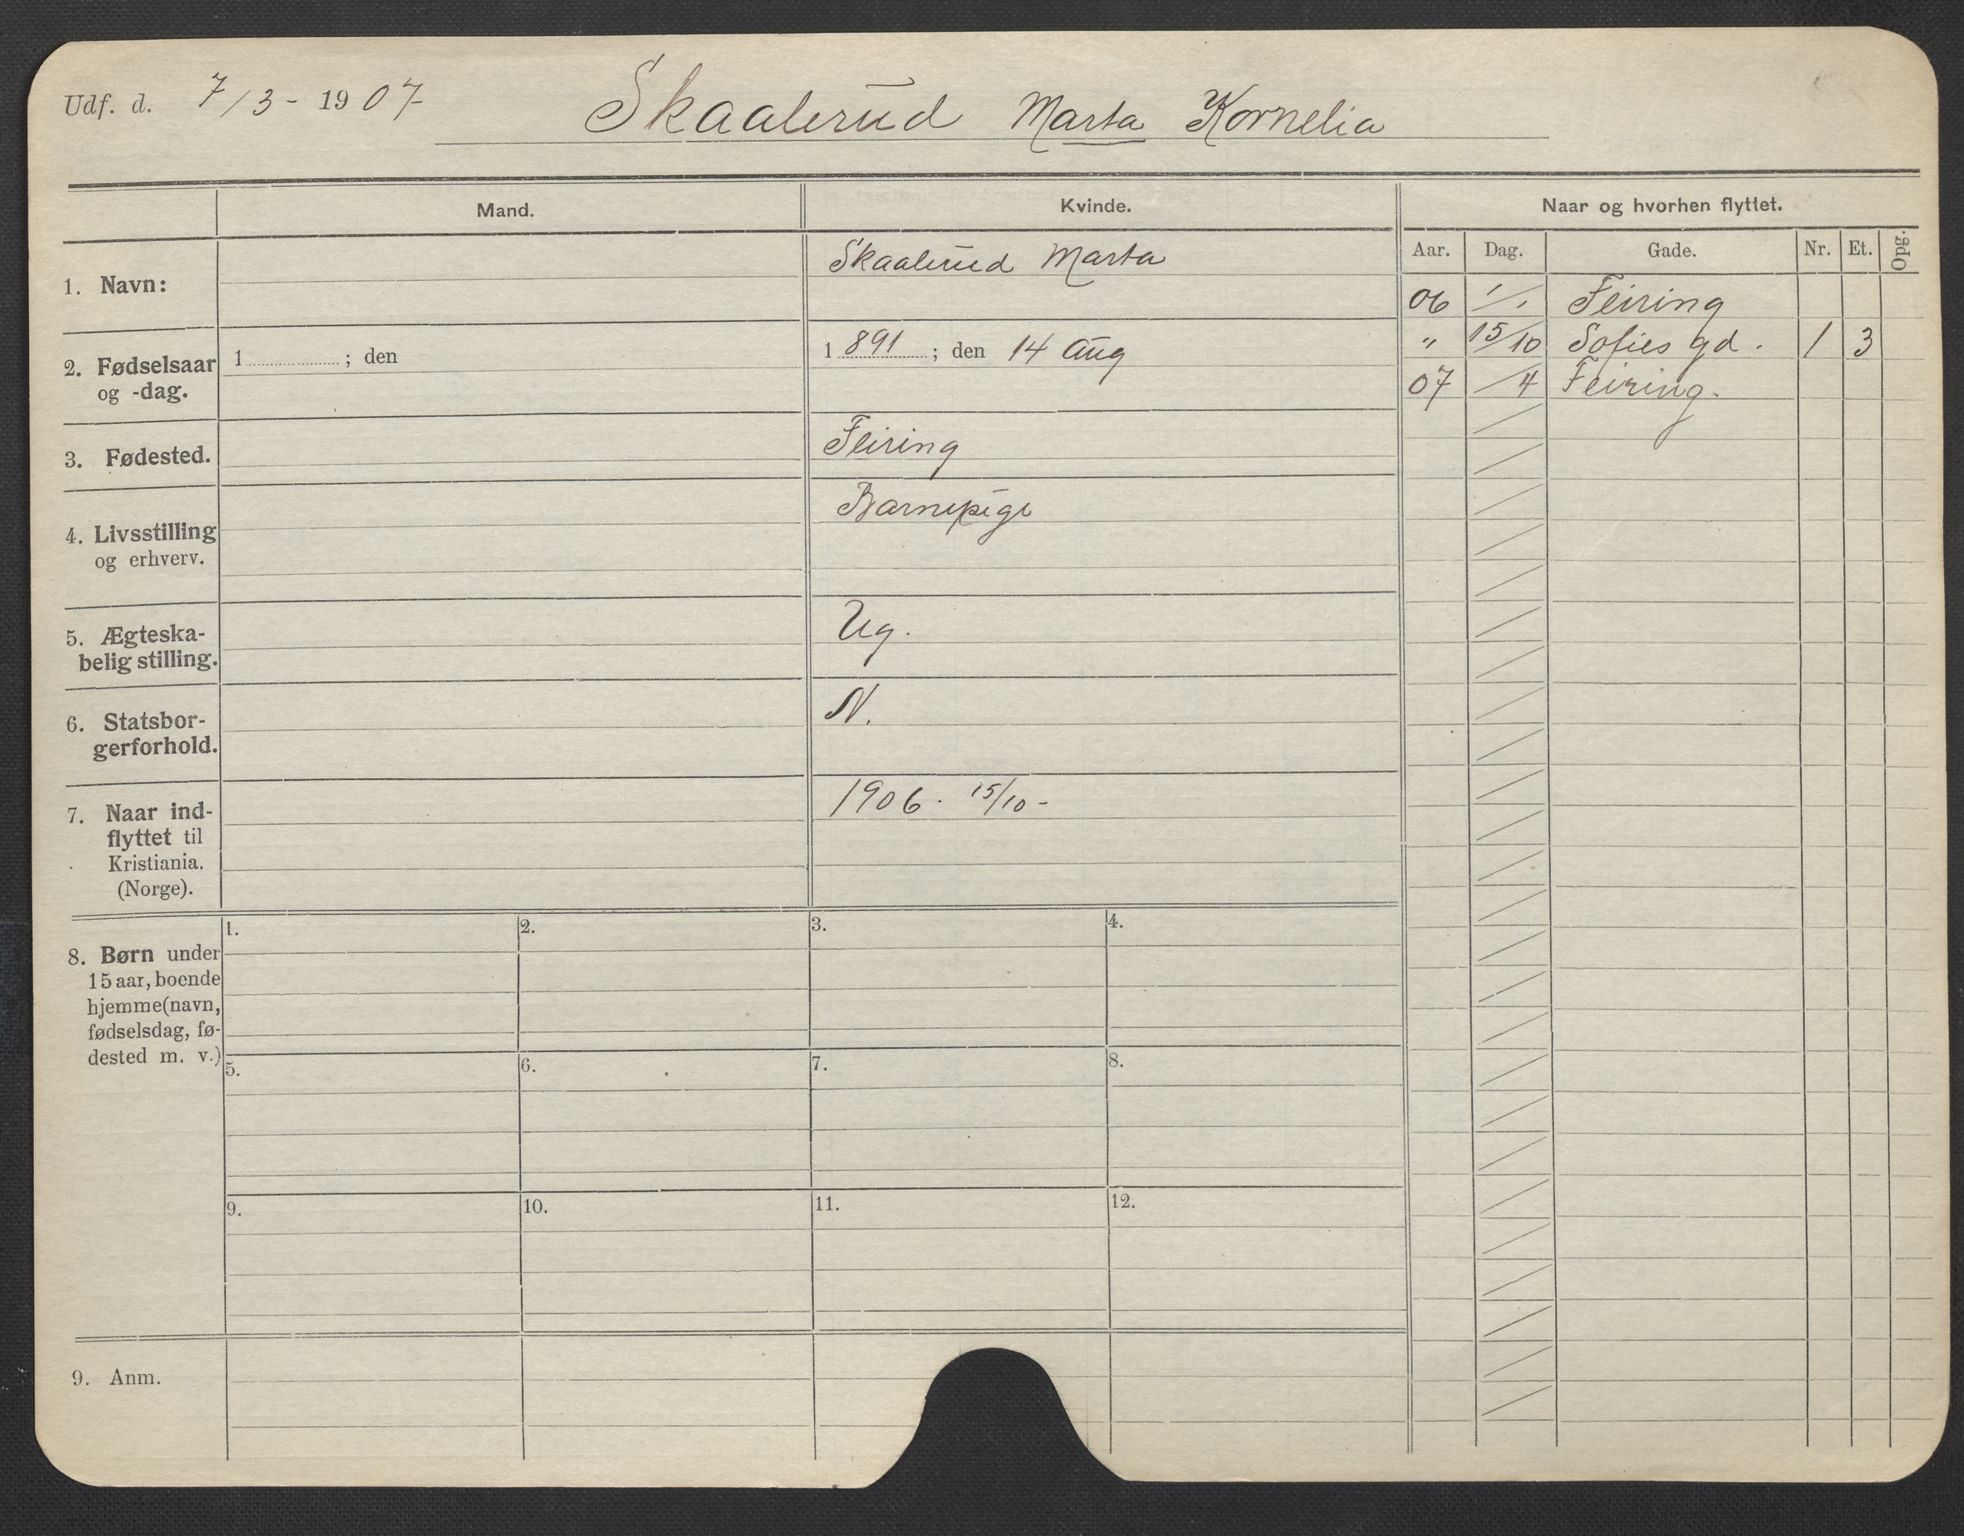 Udf. d. 7/3 - 1907 Skaalerud Marta Kornelia
Mand. Kvinde. Naar og hvorhen flyttet.
Aar. Dag. Gade. Nr. Et. Opg.
1. Navn: Skaalerud Marta
2. Fødselsaar og -dag. 1 ; den 1891 ; den 14 Aug
3. Fødested. Feiring
4. Livsstilling og erhverv. Barnepige
5. Ægteska-
belig stilling. Ug.
6. Statsbor-
gerforhold. N.
7. Naar ind-
flyttet til
Kristiania.
(Norge). 1906. 15/10 -
06 1/1 Feiring
" 15/10 Sofies gd. 1 3
07 /4 Feiring.
8. Børn under
15 aar, boende
hjemme (navn,
fødselsdag, fø-
dested m. v.)
1. 2. 3. 4.
5. 6. 7. 8.
9. 10. 11. 12.
9. Anm.